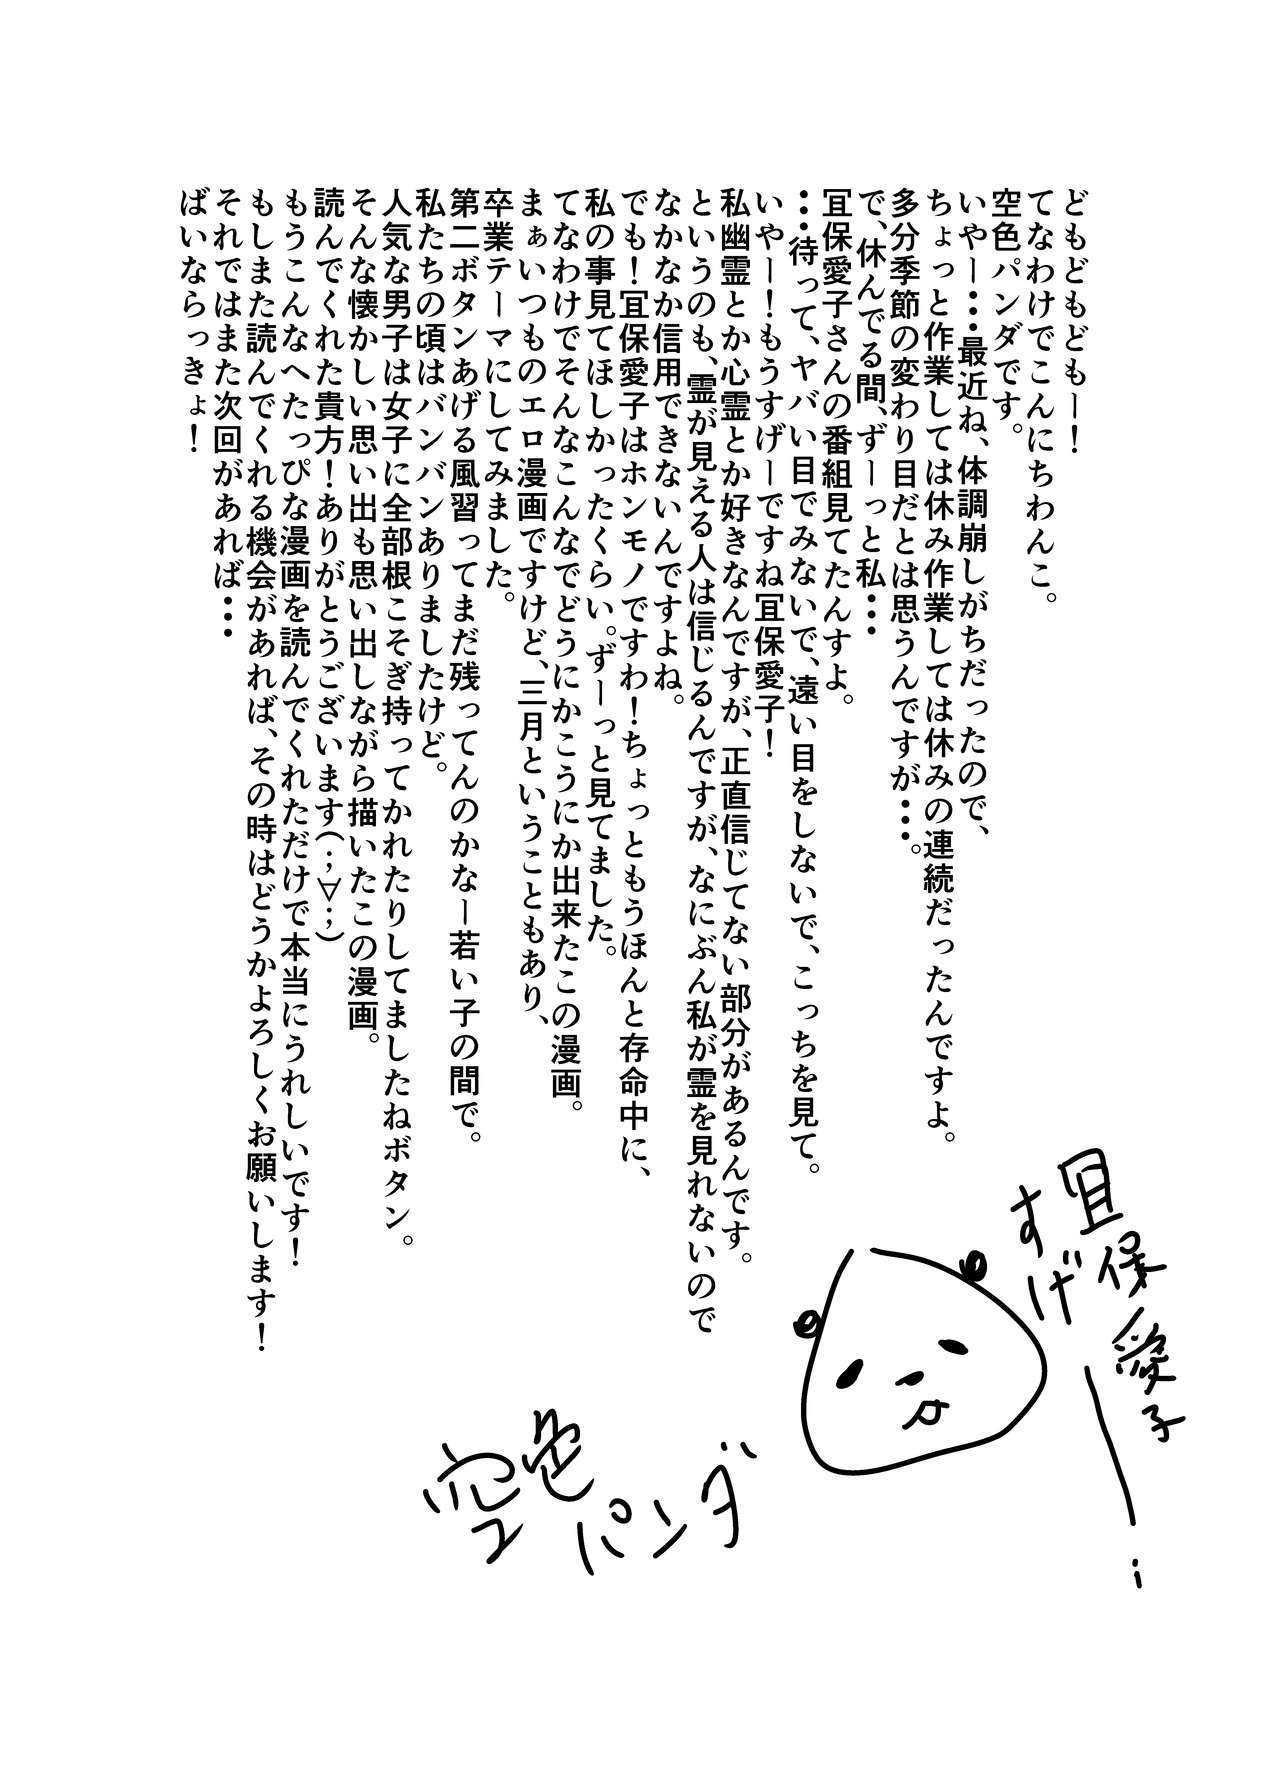 どもどもどもー！
てなわけでこんにちわんこ。
空色パンダです。
いやー…最近ね、体調崩しがちだったので、
ちょっと作業しては休み作業しては休みの連続だったんですよ。
多分季節の変わり目だとは思うんですが…。
で、休んでる間、ずーっと私…
冝保愛子さんの番組見てたんすよ。
…待って、ヤバい目でみないで、遠い目をしないで、こっちを見て。
いやー！もうすげーですね冝保愛子！
私幽霊とか心霊とか好きなんですが、正直信じてない部分があるんです。
というのも、霊が見える人は信じるんですが、なにぶん私が霊を見れないので
なかなか信用できないんですよね。
でも！冝保愛子はホンモノですわ！ちょっともうほんと存命中に、
私の事見てほしかったくらい。ずーっと見てました。
てなわけでそんなこんなでどうにかこうにか出来たこの漫画。
まぁいつものエロ漫画ですけど、三月ということもあり、
卒業テーマにしてみました。
第二ボタンあげる風習ってまだ残ってんのかなー若い子の間で。
私たちの頃はバンバンありましたけど。
人気な男子は女子に全部根こそぎ持ってかれたりしてましたねボタン。
そんな懐かしい思い出も思い出しながら描いたこの漫画。
読んでくれた貴方！ありがとうございます(；∀；)
もうこんなへたっぴな漫画を読んでくれただけで本当にうれしいです！
もしまた読んでくれる機会があれば、その時はどうかよろしくお願いします！
それではまた次回があれば…
ばいならっきょ！
冝保愛子
すげー！
空色パンダ